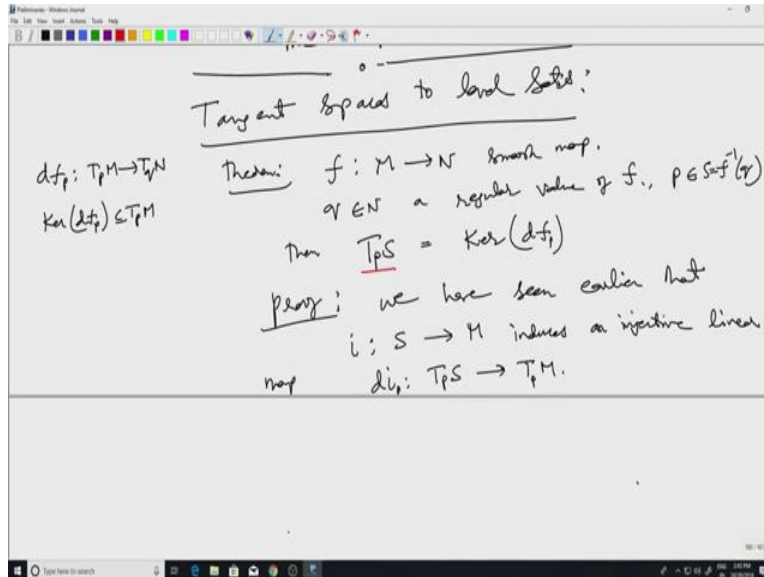 Preliminaries - Windows Journal
File Edit View Insert Actions Tools Help
Tangent spaces to level sets:
df_p : T_pM → T_qN
Ker(df_p) ⊆ T_pM
Theorem: f : M → N smooth map.
q ∈ N a regular value of f., p ∈ S = f^{-1}(q)
Then T_pS = Ker(df_p)
proof: we have seen earlier that
i : S → M induces an injective linear
map di_p : T_pS → T_pM.
Type here to search